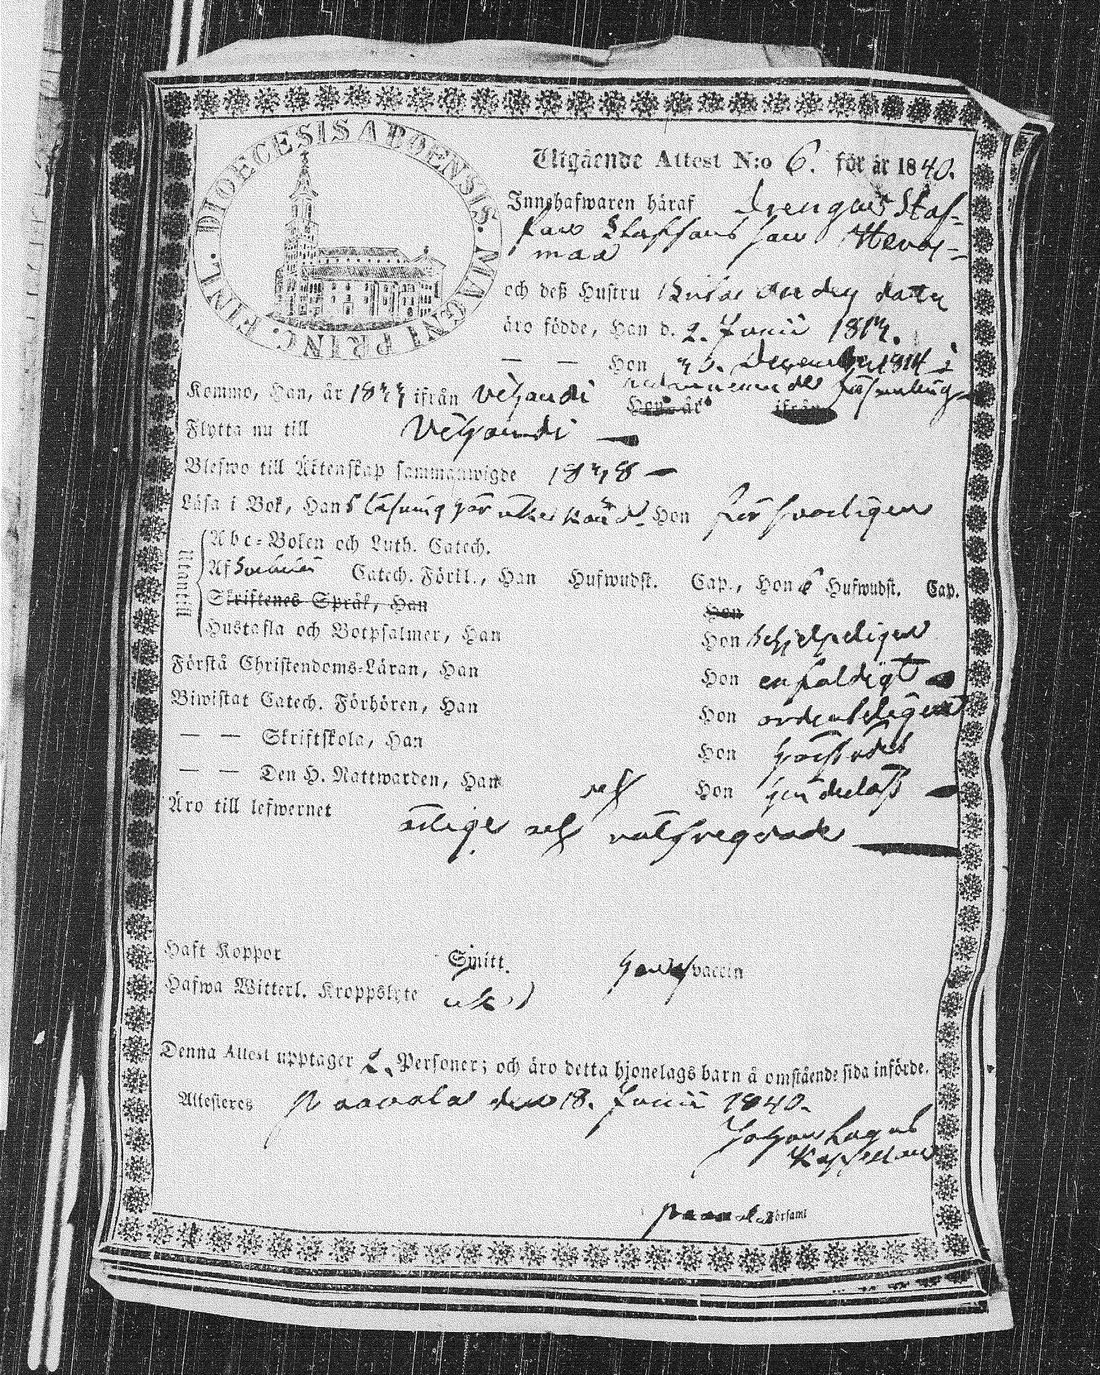 DIOECESIS ABOENSIS. MAGNI PRINC. FINL.
Utgående Attest N:o 6. för år 1840.
Innehafwaren häraf Drengen Staf-
maa
och deß Hustru
äro födde, Han d. 2. Junii
— — Hon December 1814
Kommo, Han, år ifrån Vehandi
Hon år ifrån
Flytta nu till Vehandi —
Blefwo till Äktenskap sammanwigde 1838 —
Läsa i Bok, Han Hon försvarligen
Utantill
Abc-Boken och Luth. Catech.
Af Catech. Förkl., Han Hufwudst. Cap., Hon 6 Hufwudst. Cap.
Skriftenes Språk, Han Hon
Hustafla och Botpsalmer, Han Hon behjelpeligen
Första Christendoms-Läran, Han Hon enfaldigt
Biwistat Catech. Förhören, Han Hon ordenteligen
— — Skriftskola, Han Hon
— — Den H. Nattwarden, Han och Hon
Äro till lefwernet
ärlige och välfregdade
Haft Koppor Smitt. vaccin
Hafwa Witterl. Kroppslyte
Denna Attest upptager 2 Personer; och äro detta hjonelags barn å omstående sida införde.
Attesteres Paavola den 18. Junii 1840.
Johan Lagus
Kapellan
Paavola Församl